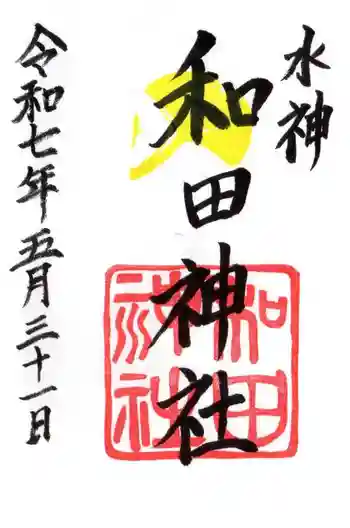 水神
和田神社
令和七年五月三十一日
和田
神社